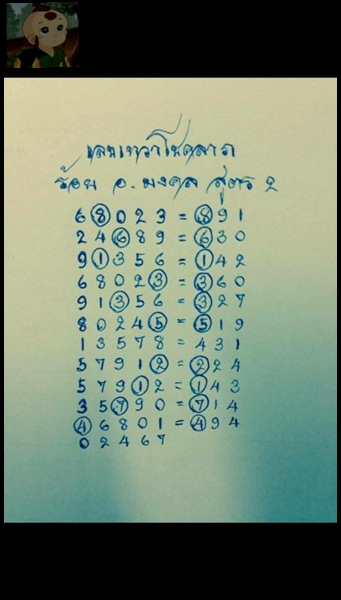 เลขเทวาโชคลาภ
ร้อย อ.มงคล สูตร 2
6 8 0 2 3 = 8 9 1
2 4 6 8 9 = 6 3 0
9 1 3 5 6 = 1 4 2
6 8 0 2 3 = 3 6 0
9 1 3 5 6 = 3 2 7
8 0 2 4 5 = 5 1 9
1 3 5 7 8 = 4 3 1
5 7 9 1 2 = 2 2 4
5 7 9 1 2 = 1 4 3
3 5 7 9 0 = 7 1 4
4 6 8 0 1 = 4 9 4
0 2 4 6 7